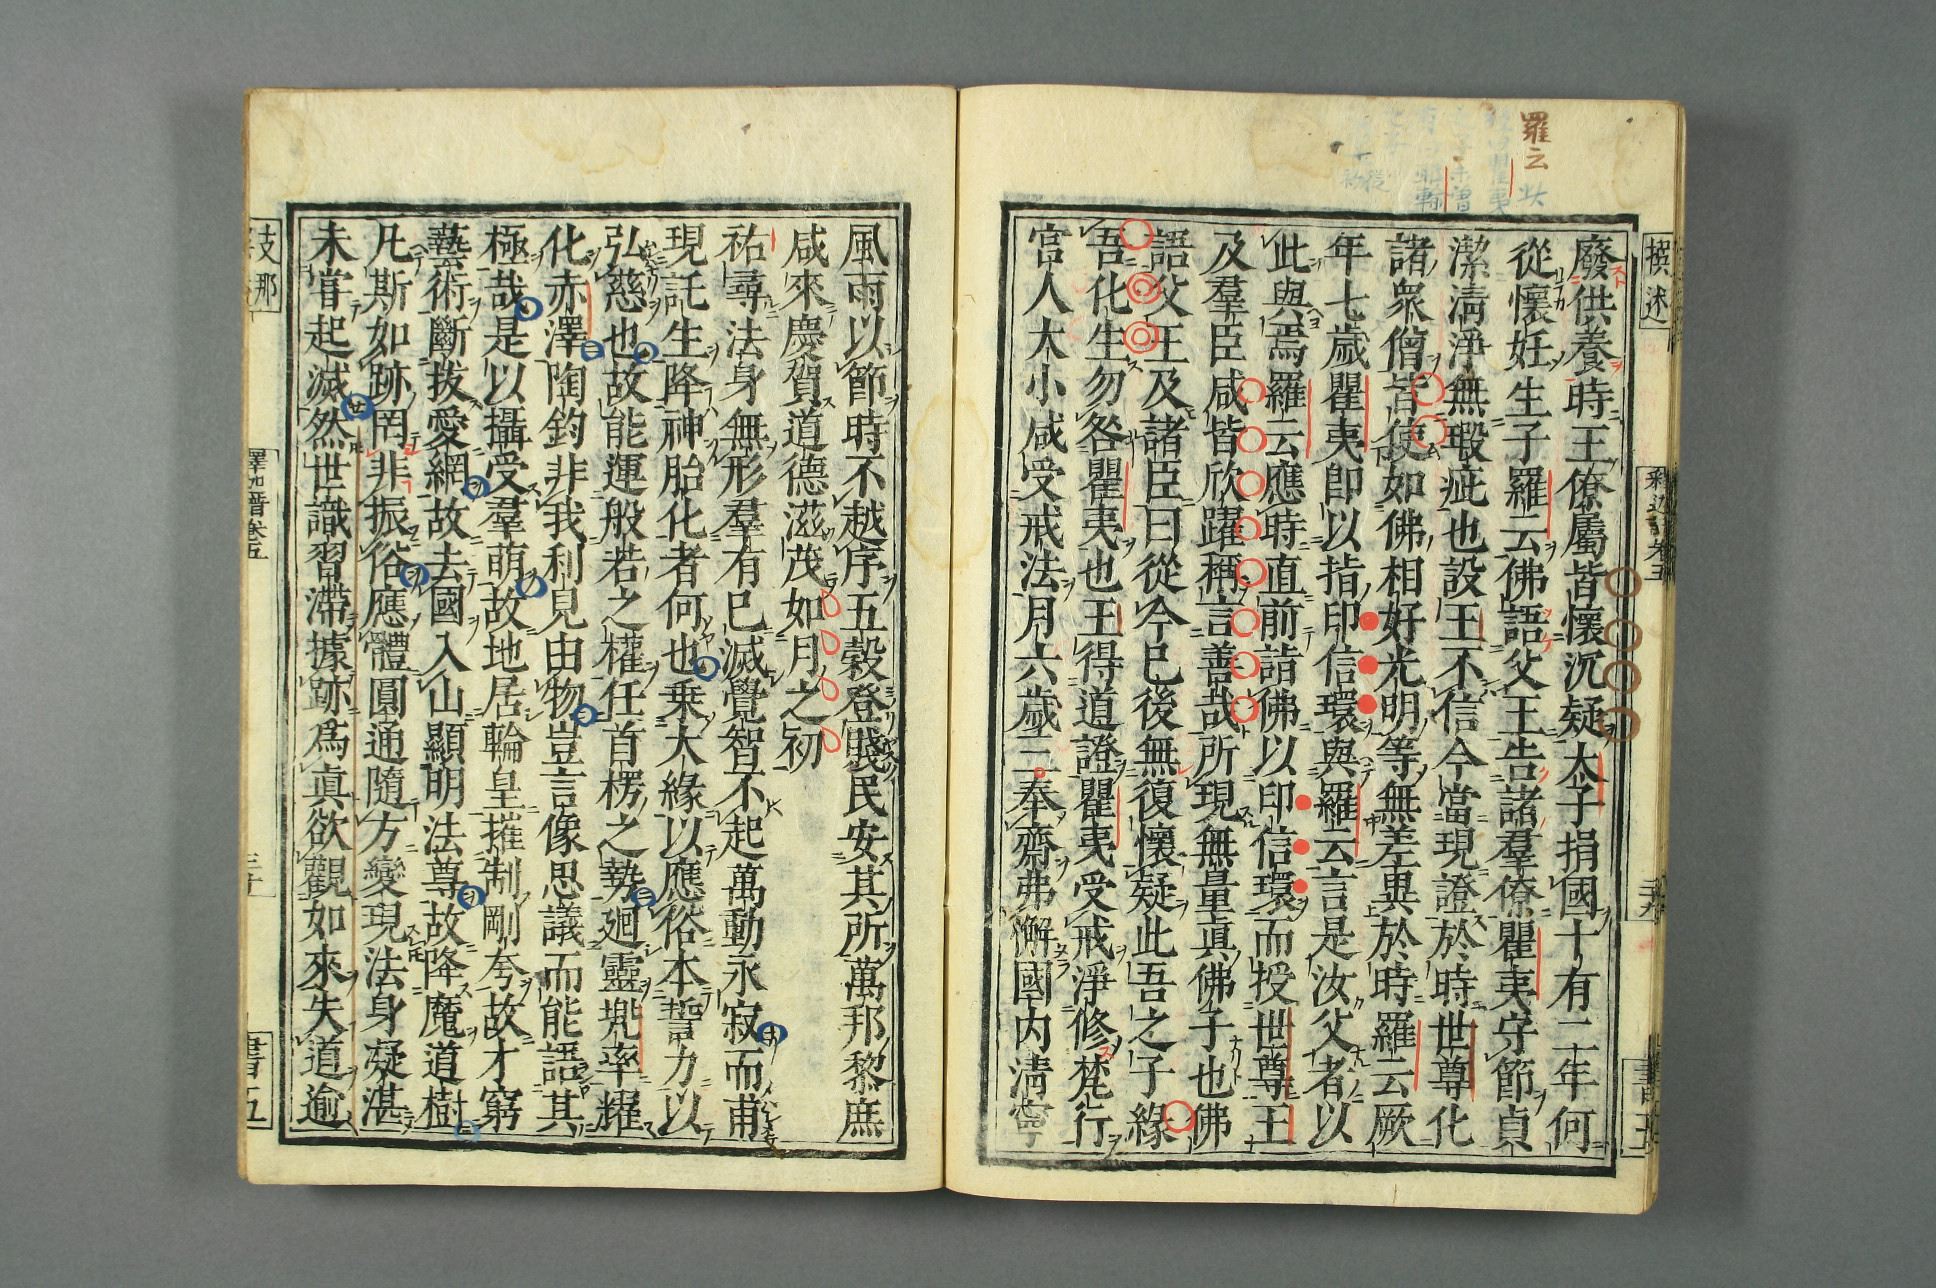 羅云
廢供養時王僚屬皆懷沉疑太子捐國十有二年何
從懷妊生子羅云佛語父王告諸羣僚瞿夷守節貞
潔清淨無瑕疵也設王不信今當現證於時世尊化
諸衆僧皆使如佛相好光明等無差異於時羅云厥
年七歲瞿夷即以指印信環與羅云言是汝父者以
此與焉羅云應時直前詣佛以印信環而授世尊王
及羣臣咸皆欣躍稱言善哉所現無量眞佛子也佛
語父王及諸臣曰從今已後無復懷疑此吾之子緣
吾化生勿咎瞿夷也王得道證瞿夷受戒淨修梵行
宮人大小咸受戒法月六歲三奉齋弗懈國內淸寧
風雨以節時不越序五穀登賤民安其所萬邦黎庶
咸來慶賀道德滋茂如月之初
祐尋法身無形羣有已滅覺智不起萬動永寂而甫
現託生降神胎化者何也乗大緣以應俗本誓力以
弘慈也故能運般若之權任首楞之勢廻靈兜率耀
化赤澤陶鈞非我利見由物豈言像思議而能語其
極哉是以攝受羣萌故地居輪皇摧制剛夸故才窮
藝術斷拔愛網故去國入山顯明法尊故降魔道樹
凡斯如跡罔非振俗應體圓通隨方變現法身凝湛
未甞起滅然世識習滯據跡爲眞欲觀如來失道逾